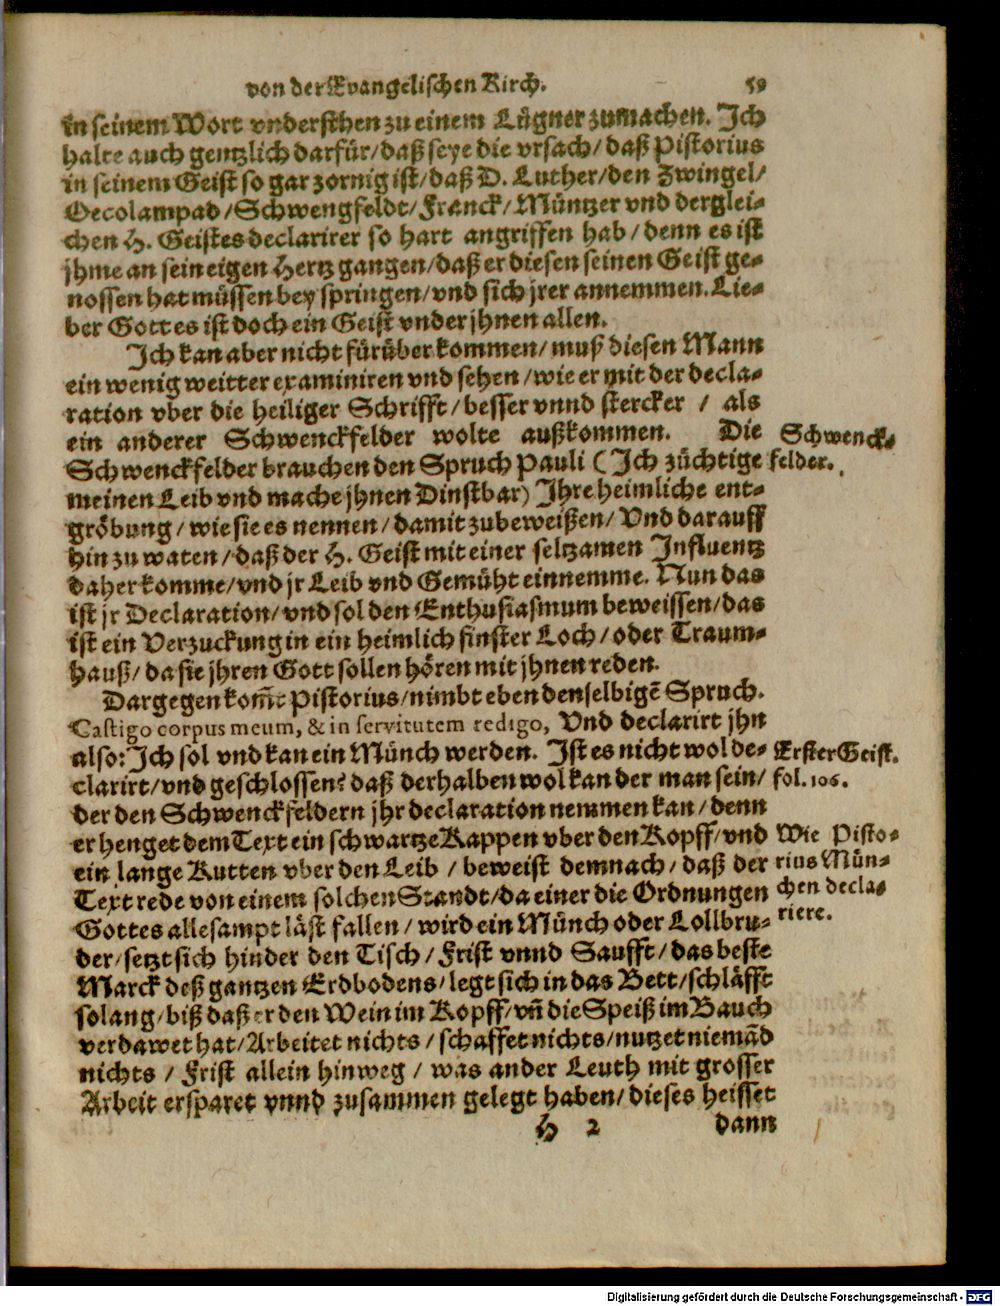 von der Evangelischen Kirch. 59
in seinem Wort vnderstehen zu einem Lügner zumachen. Ich
halte auch gentzlich darfür/daß seye die vrsach/daß Pistorius
in seinem Geist so gar zornig ist/daß D. Luther/den Zwingel/
Oecolampad/Schwengfeldt/Franck/Müntzer vnd derglei-
chen H. Geistes declarirer so hart angriffen hab/denn es ist
jhme an sein eigen Hertz gangen/daß er diesen seinen Geist ge-
nossen hat müssen bey springen/vnd sich jrer annemmen. Lie-
ber Gott es ist doch ein Geist vnder jhnen allen.
Ich kan aber nicht fürüber kommen/muß diesen Mann
ein wenig weitter examiniren vnd sehen/wie er mit der decla-
ration vber die heiliger Schrifft/besser vnnd stercker / als
ein anderer Schwenckfelder wolte außkommen. Die
Schwenckfelder brauchen den Spruch Pauli (Ich züchtige
meinen Leib vnd mache jhnen Dinstbar) Ihre heimliche ent-
gröbung/wie sie es nennen/damit zubeweißen/Vnd darauff
hin zu waten/daß der H. Geist mit einer seltzamen Influentz
daher komme/vnd jr Leib vnd Gemüht einnemme. Nun das
ist jr Declaration/vnd sol den Enthusiasmum beweissen/das
ist ein Verzuckung in ein heimlich finster Loch/oder Traum-
hauß/da sie jhren Gott sollen hören mit jhnen reden.
Dargegen kom̃t Pistorius/nimbt eben denselbigẽ Spruch.
Castigo corpus meum, & in servitutem redigo, Vnd declarirt jhn
also: Ich sol vnd kan ein Münch werden. Ist es nicht wol de-
clarirt/vnd geschlossen? daß derhalben wol kan der man sein/
der den Schwenckfeldern jhr declaration nemmen kan/denn
er henget dem Text ein schwartze Kappen vber den Kopff/vnd
ein lange Kutten vber den Leib / beweist demnach/daß der
Text rede von einem solchen Standt/da einer die Ordnungen
Gottes allesampt läst fallen/wird ein Münch oder Lollbru-
der/setzt sich hinder den Tisch/Frist vnnd Saufft/das beste
Marck deß gantzen Erdbodens/legt sich in das Bett/schläfft
solang/biß daß er den Wein im Kopff/vñ die Speiß im Bauch
verdawet hat/Arbeitet nichts/schaffet nichts/nutzet niemãd
nichts / Frist allein hinweg / was ander Leuth mit grosser
Arbeit ersparet vnnd zusammen gelegt haben/dieses heisset
H 2 dann
Schwenck-
felder.
Erster Geist.
fol. 106.
Wie Pisto-
rius Mün-
chen decla-
riere.
Digitalisierung gefördert durch die Deutsche Forschungsgemeinschaft - DFG